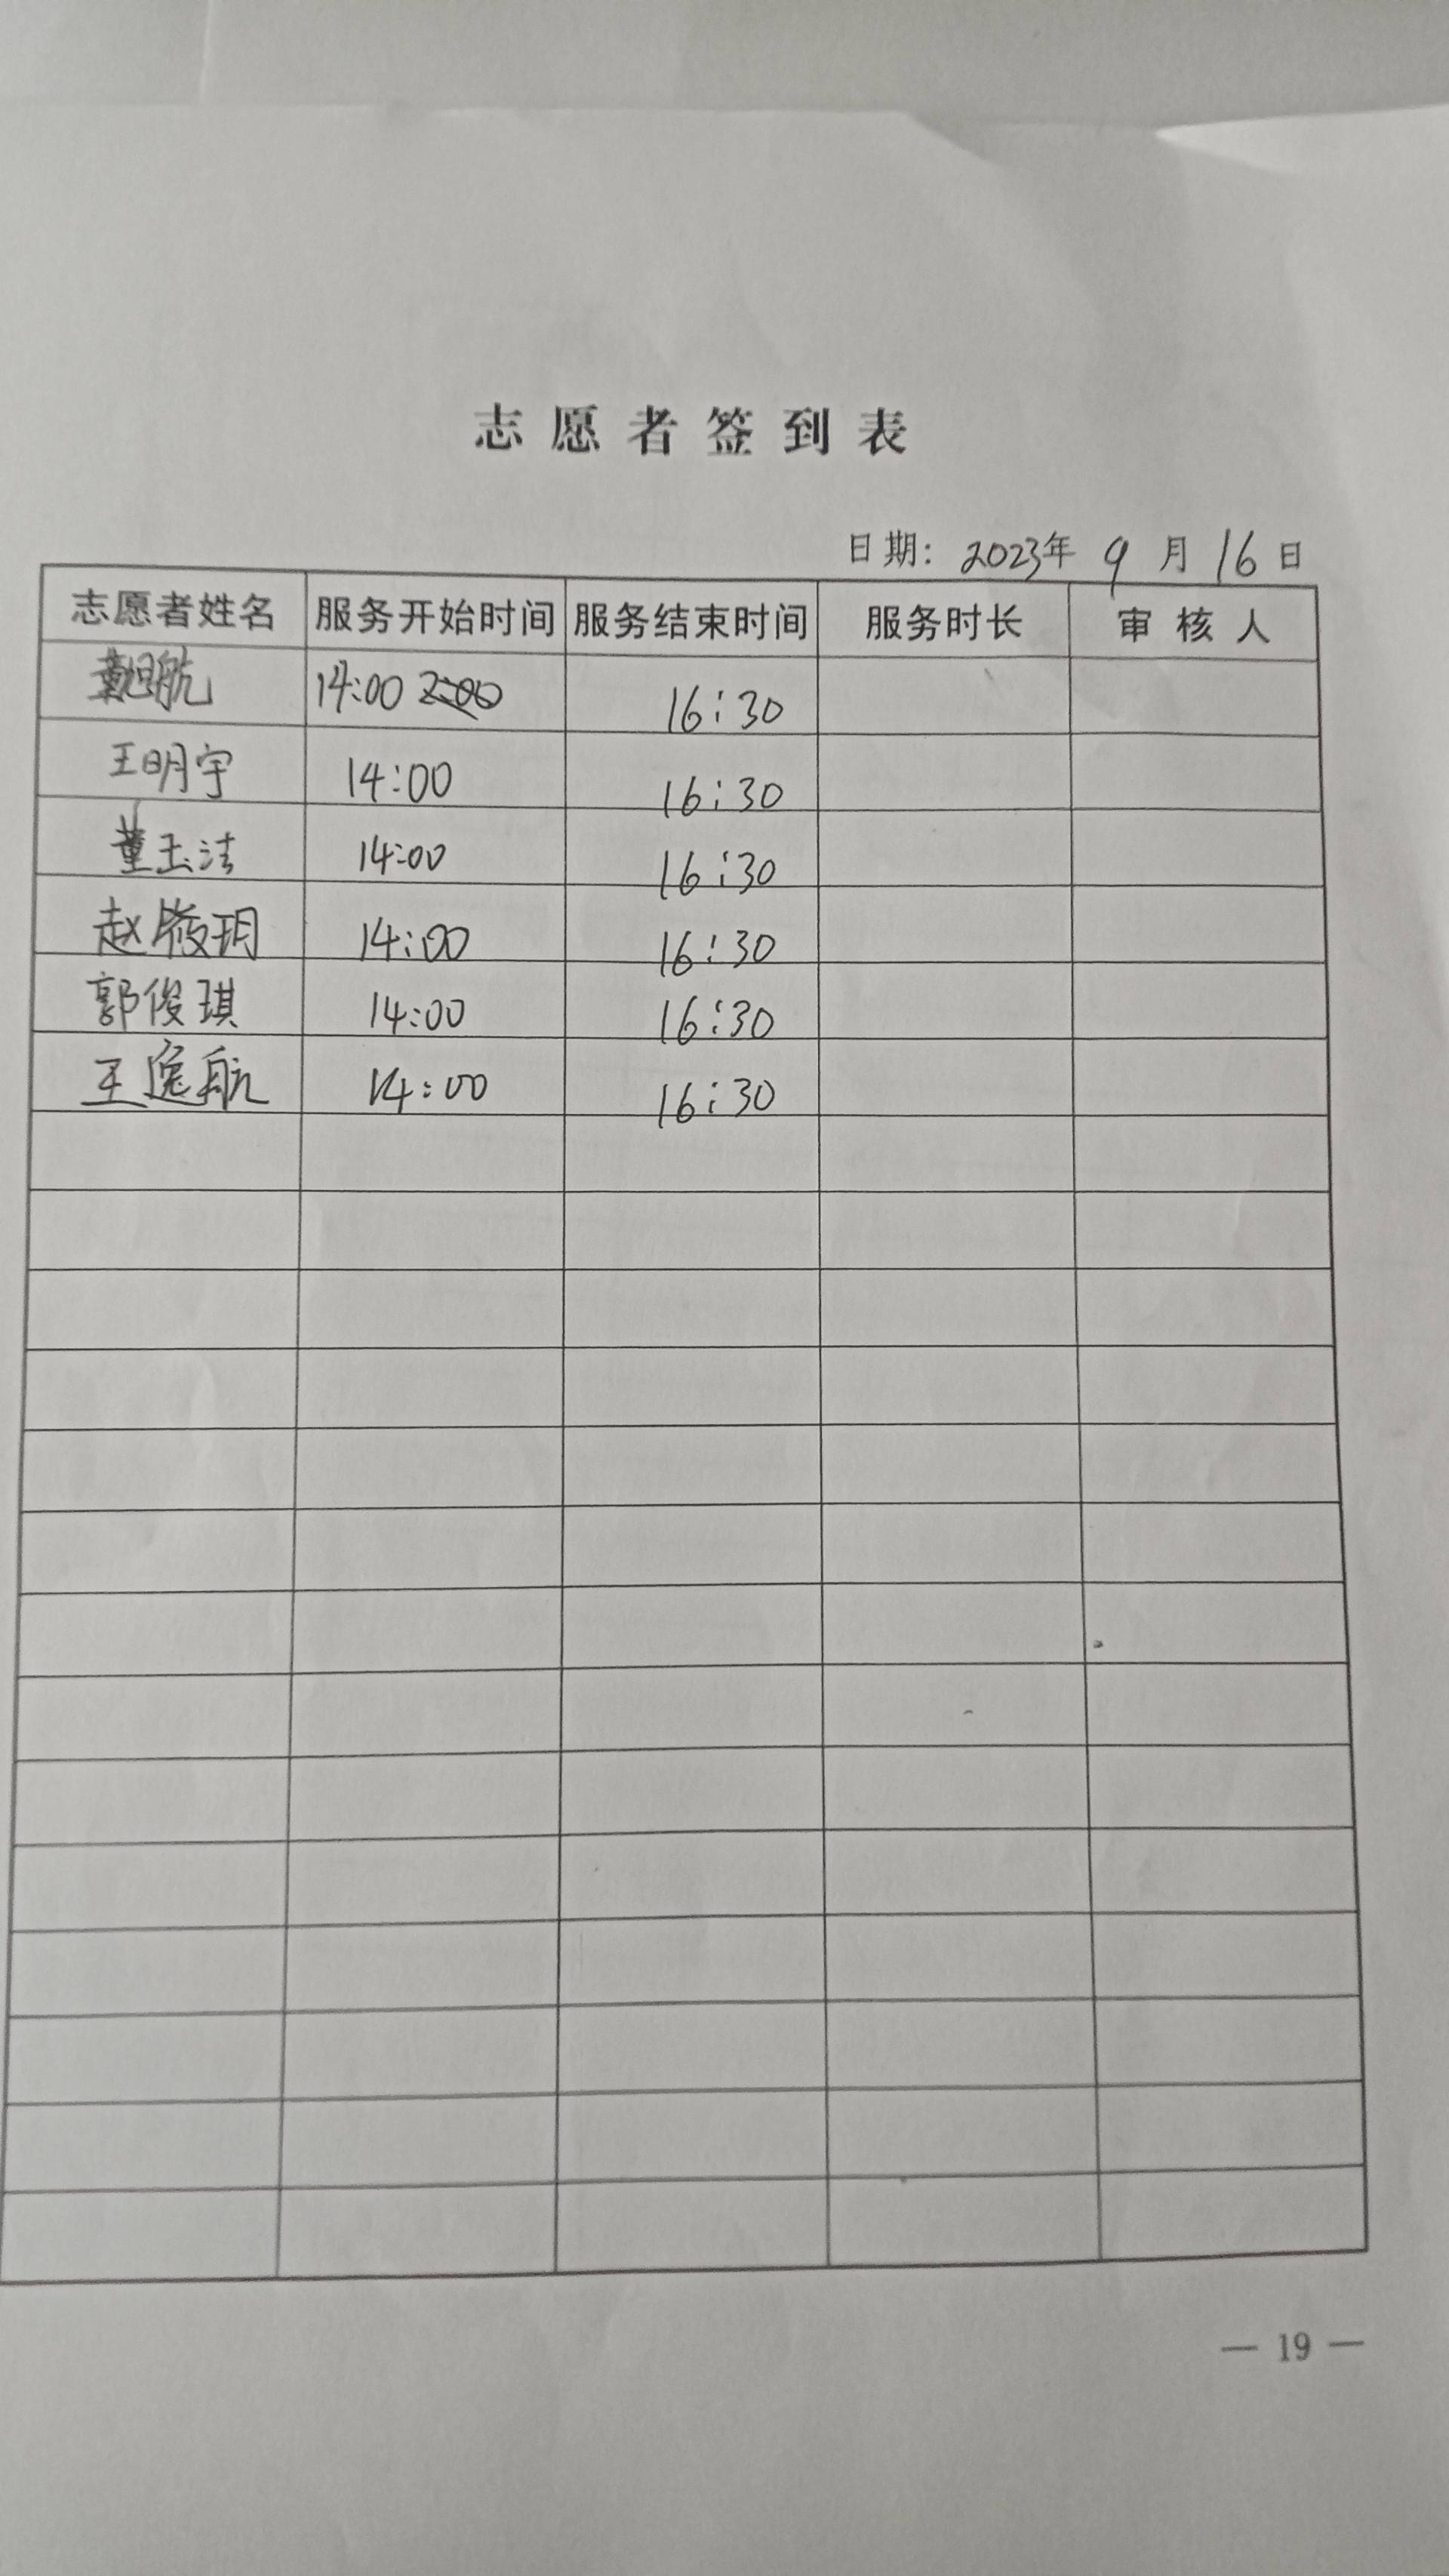 志愿者签到表
日期：2023年 9 月 16 日
志愿者姓名 服务开始时间 服务结束时间 服务时长 审核人
14:00 2:00 16:30
王明宇 14:00 16:30
董玉洁 14:00 16:30
赵筱玥 14:00 16:30
郭俊琪 14:00 16:30
王逸航 14:00 16:30
— 19 —